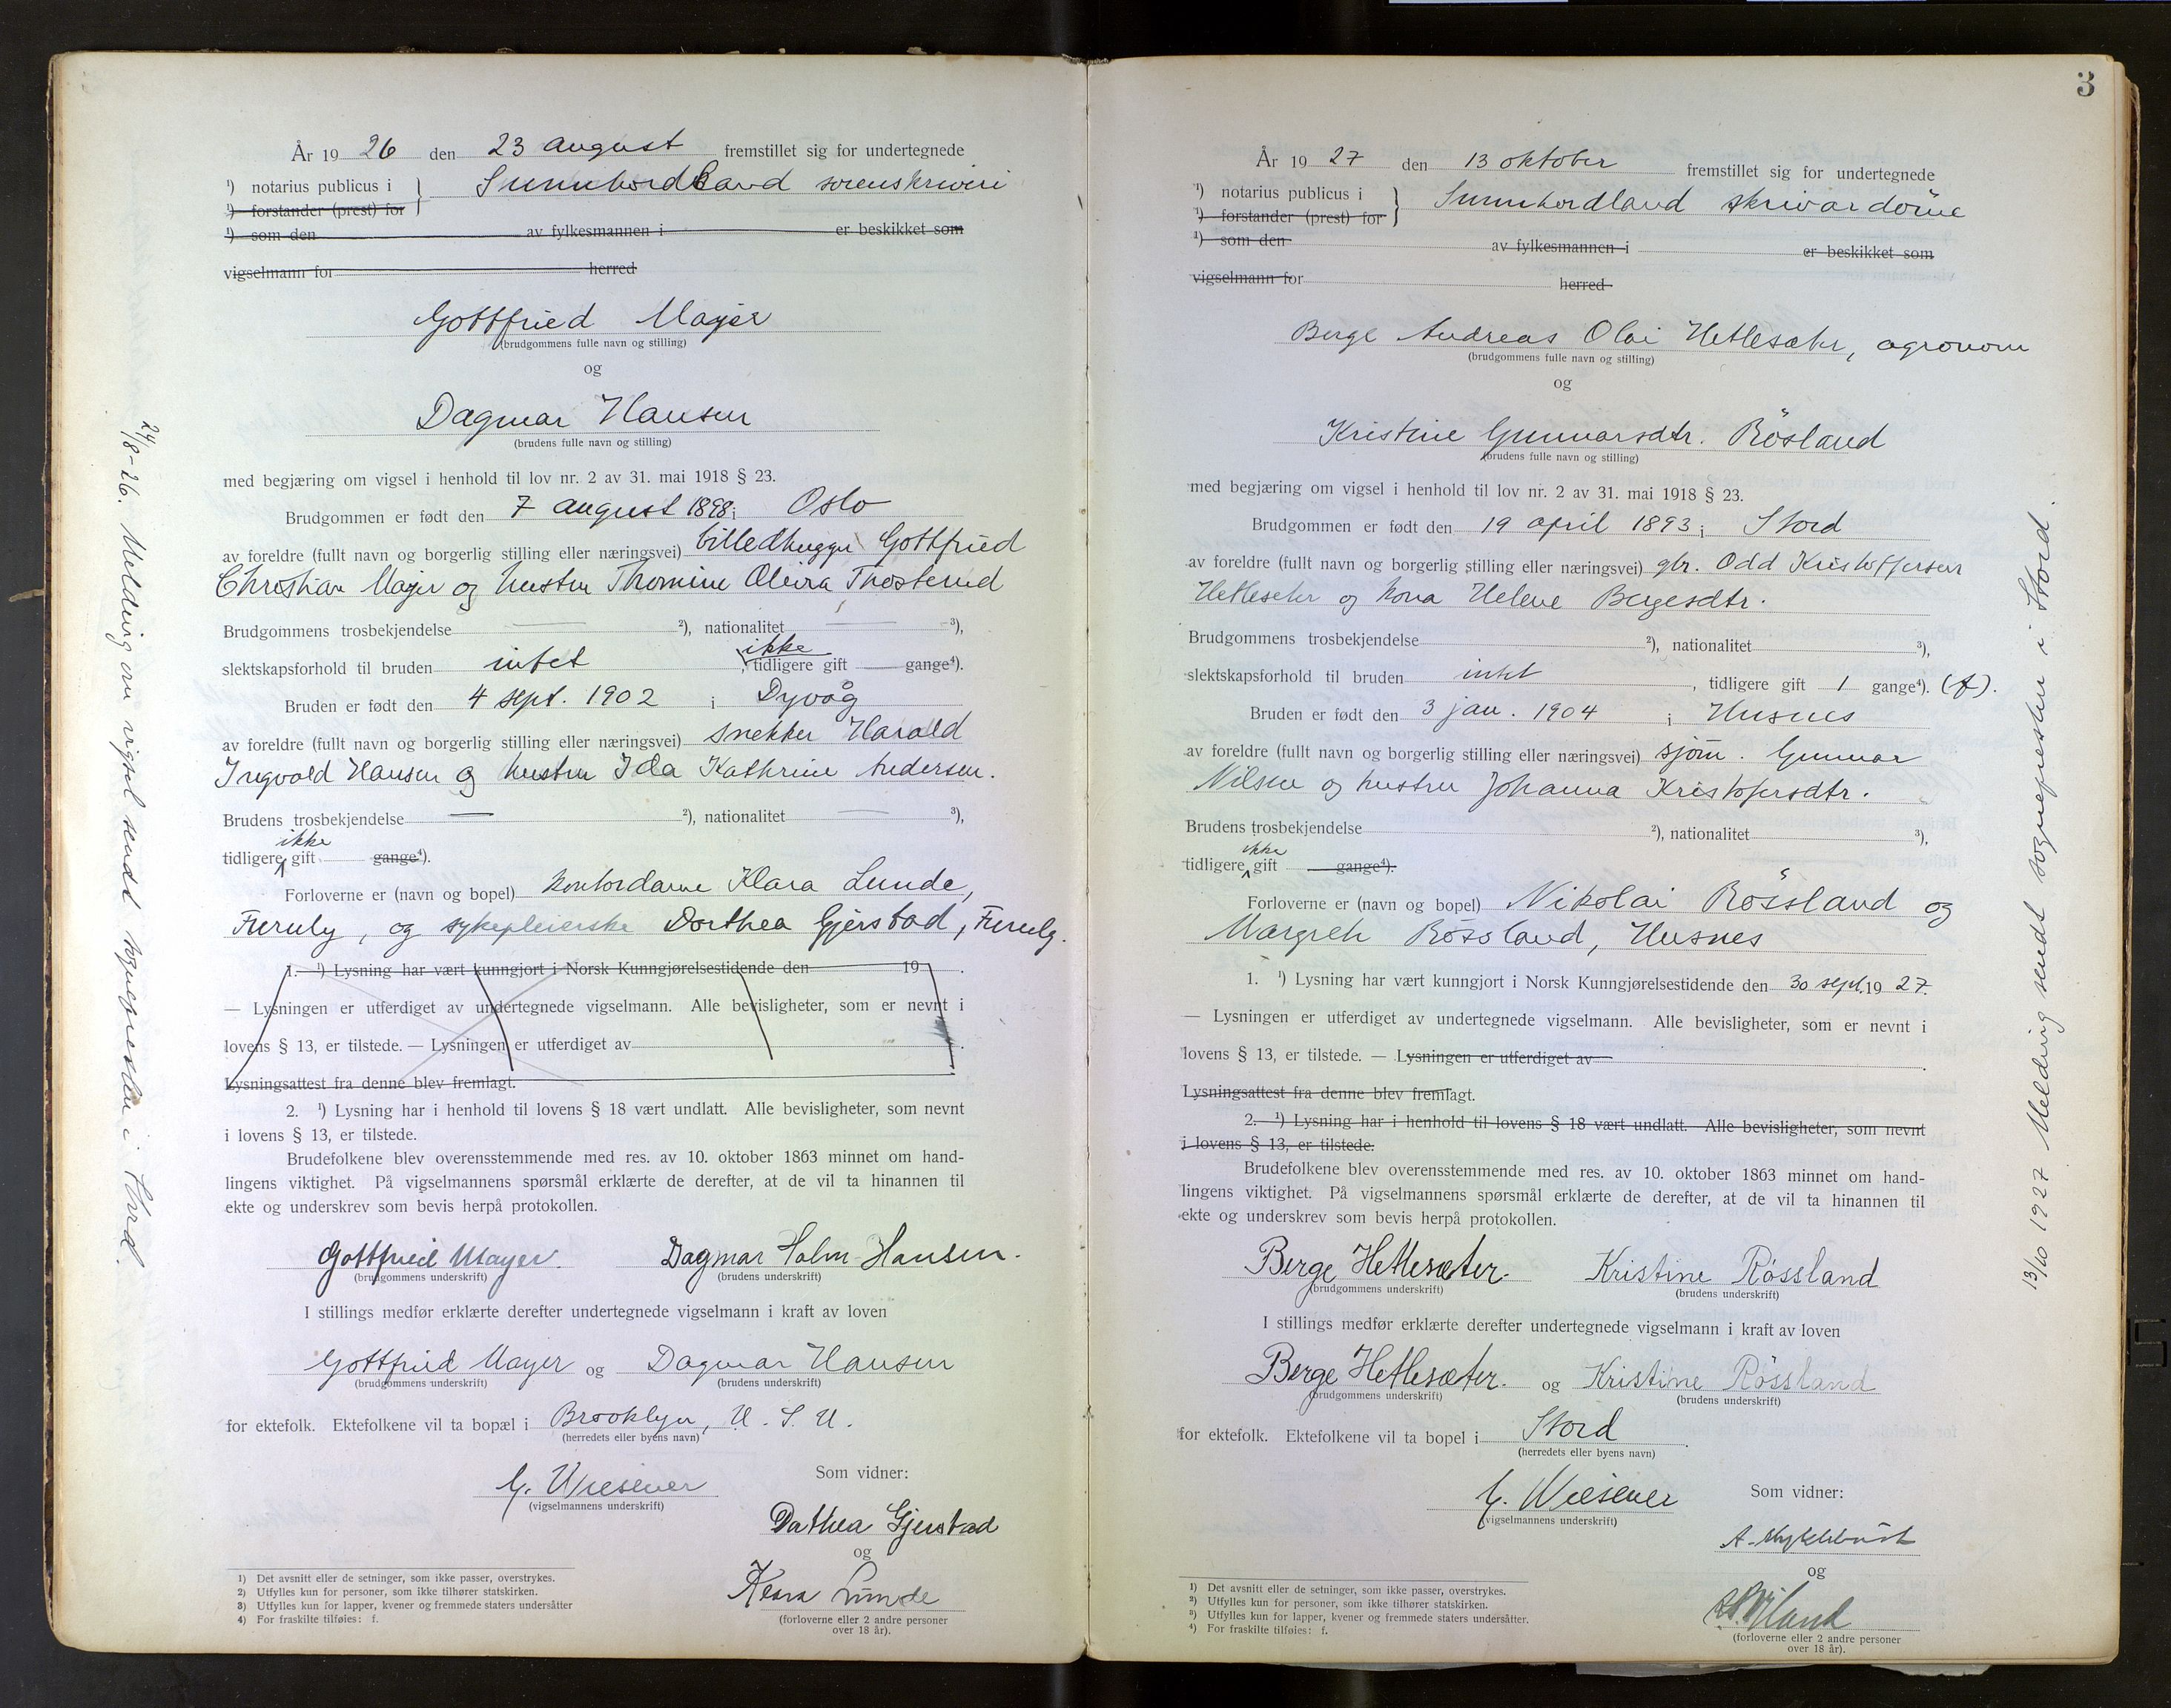 År 19 26 den 23 august fremstillet sig for undertegnede
¹) notarius publicus i } Sunnhordland sorenskriveri
¹) forstander (prest) for
¹) som den av fylkesmannen i er beskikket som
vigselmann for herred
Gottfried Mayer
(brudgommens fulle navn og stilling)
og
Dagmar Hansen
(brudens fulle navn og stilling)
med begjæring om vigsel i henhold til lov nr. 2 av 31. mai 1918 § 23.
Brudgommen er født den 7 august 1898 i Oslo
av foreldre (fullt navn og borgerlig stilling eller næringsvei) billedhugger Gottfried
Christian Mayer og hustru Thomine Oleira Thosterud
Brudgommens trosbekjendelse — ²), nationalitet — ³),
slektskapsforhold til bruden intet ikke , tidligere gift — gange⁴).
Bruden er født den 4 sept. 1902 i Dyvåg
av foreldre (fullt navn og borgerlig stilling eller næringsvei) snekker Harald
Ingvald Hansen og hustru Ida Kathrine Andersen.
Brudens trosbekjendelse — ²), nationalitet — ³),
ikke
tidligere gift gange⁴).
Forloverne er (navn og bopel) kontordame Klara Lunde,
Furuly, og sykepleierske Dorthea Gjerstad, Furuly.
1. ¹) Lysning har vært kunngjort i Norsk Kunngjørelsestidende den 19 .
— Lysningen er utferdiget av undertegnede vigselmann. Alle bevisligheter, som er nevnt i
lovens § 13, er tilstede. — Lysningen er utferdiget av .
Lysningsattest fra denne blev fremlagt.
2. ¹) Lysning har i henhold til lovens § 18 vært undlatt. Alle bevisligheter, som nevnt
i lovens § 13, er tilstede.
Brudefolkene blev overensstemmende med res. av 10. oktober 1863 minnet om hand-
lingens viktighet. På vigselmannens spørsmål erklærte de derefter, at de vil ta hinannen til
ekte og underskrev som bevis herpå protokollen.
Gottfried Mayer. Dagmar Holm-Hansen.
(brudgommens underskrift) (brudens underskrift)
I stillings medfør erklærte derefter undertegnede vigselmann i kraft av loven
Gottfried Mayer og Dagmar Hansen
(brudgommens underskrift) (brudens underskrift)
for ektefolk. Ektefolkene vil ta bopæl i Brooklyn, U. S. A.
(herredets eller byens navn)
G. Wiesener Som vidner:
(vigselmannens underskrift)
Dathea Gjerstad
og
Klara Lunde
(forloverne eller 2 andre personer
over 18 år).
1) Det avsnitt eller de setninger, som ikke passer, overstrykes.
2) Utfylles kun for personer, som ikke tilhører statskirken.
3) Utfylles kun for lapper, kvener og fremmede staters undersåtter
4) For fraskilte tilføies: f.
24/8-26. Melding om vigsel sendt sognepresten i Stord.
3
År 19 27 den 13 oktober fremstillet sig for undertegnede
¹) notarius publicus i } Sunnhordland skrivardöme
¹) forstander (prest) for
¹) som den av fylkesmannen i er beskikket som
vigselmann for herred
Berge Andreas Olai Hetlesæter, agronom
(brudgommens fulle navn og stilling)
og
Kristine Gunnarsdtr. Rösland
(brudens fulle navn og stilling)
med begjæring om vigsel i henhold til lov nr. 2 av 31. mai 1918 § 23.
Brudgommen er født den 19 april 1893 i Stord
av foreldre (fullt navn og borgerlig stilling eller næringsvei) gbr. Odd Kristoffersen
Hetleseter og kona Helene Bergesdtr.
Brudgommens trosbekjendelse ²), nationalitet ³),
slektskapsforhold til bruden intet , tidligere gift 1 gange⁴). (f).
Bruden er født den 3 jan. 1904 i Husnes
av foreldre (fullt navn og borgerlig stilling eller næringsvei) sjöm. Gunnar
Nilsen og hustru Johanna Kristofersdtr.
Brudens trosbekjendelse ²), nationalitet ³),
ikke
tidligere gift gange⁴).
Forloverne er (navn og bopel) Nikolai Rössland og
Margreth Rössland, Husnes
1. ¹) Lysning har vært kunngjort i Norsk Kunngjørelsestidende den 30 sept. 19 27.
— Lysningen er utferdiget av undertegnede vigselmann. Alle bevisligheter, som er nevnt i
lovens § 13, er tilstede. — Lysningen er utferdiget av .
Lysningsattest fra denne blev fremlagt.
2. ¹) Lysning har i henhold til lovens § 18 vært undlatt. Alle bevisligheter, som nevnt
i lovens § 13, er tilstede.
Brudefolkene blev overensstemmende med res. av 10. oktober 1863 minnet om hand-
lingens viktighet. På vigselmannens spørsmål erklærte de derefter, at de vil ta hinannen til
ekte og underskrev som bevis herpå protokollen.
Berge Hetlesæter. Kristine Røssland
(brudgommens underskrift) (brudens underskrift)
I stillings medfør erklærte derefter undertegnede vigselmann i kraft av loven
Berge Hetlesæter. og Kristine Røssland
(brudgommens underskrift) (brudens underskrift)
for ektefolk. Ektefolkene vil ta bopel i Stord .
(herredets eller byens navn)
G. Wiesener Som vidner:
(vigselmannens underskrift)
A. Myklebust
og
(forloverne eller 2 andre personer
over 18 år).
1) Det avsnitt eller de setninger, som ikke passer, overstrykes.
2) Utfylles kun for personer, som ikke tilhører statskirken.
3) Utfylles kun for lapper, kvener og fremmede staters undersåtter.
4) For fraskilte tilføies: f.
13/10 1927 Melding sendt sognepresten i Stord.